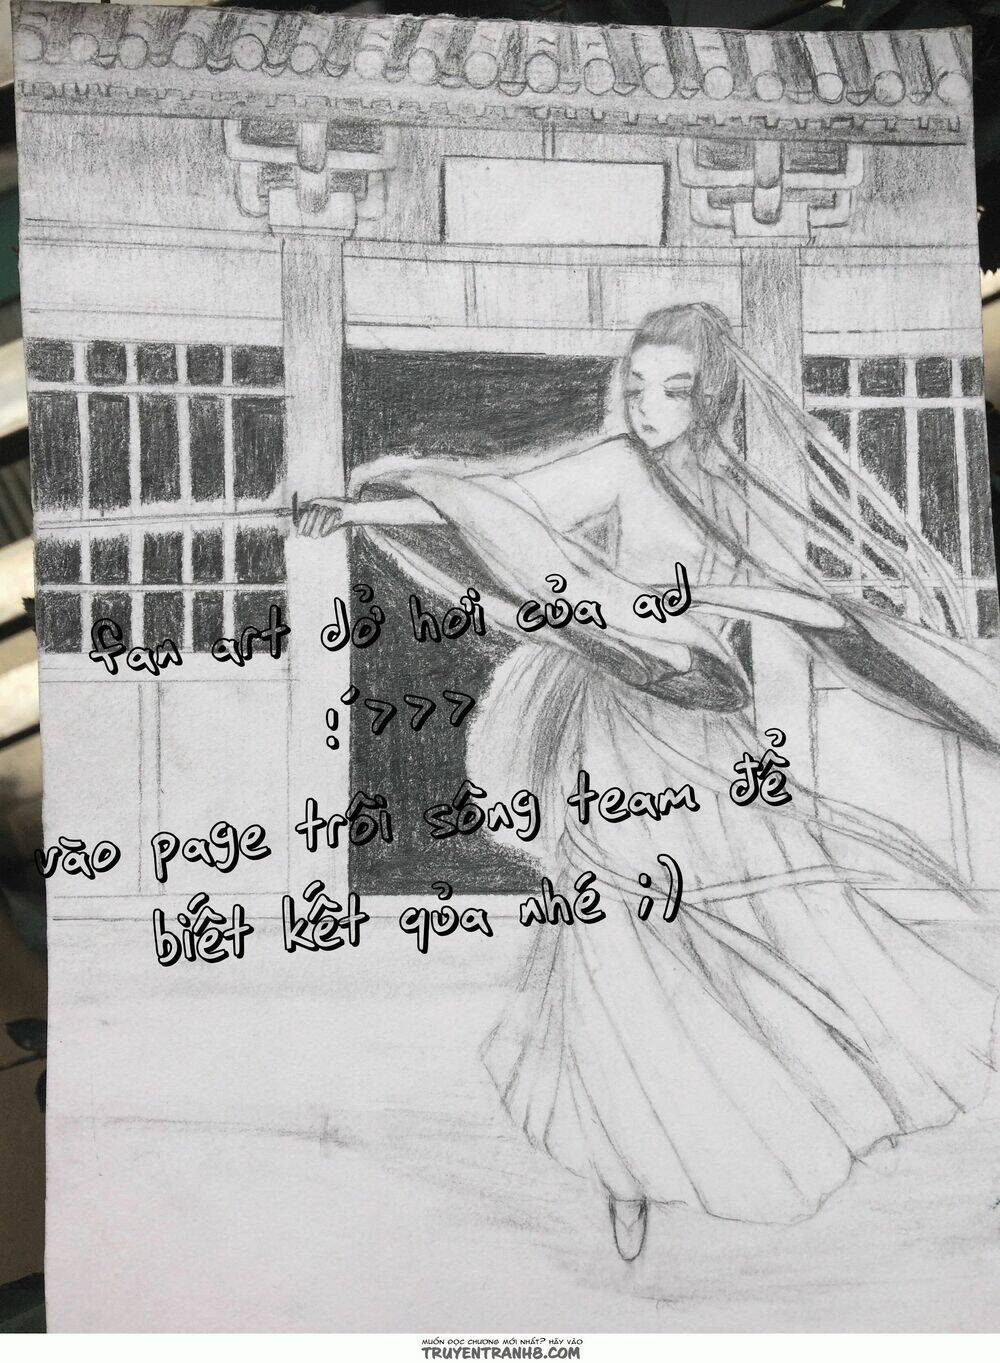 fan art dở hơi của ad
:́>>>
vào page trôi sông team để
biết kết qủa nhé ;)
MUỐN ĐỌC CHƯƠNG MỚI NHẤT? HÃY VÀO
TRUYENTRANH8.COM